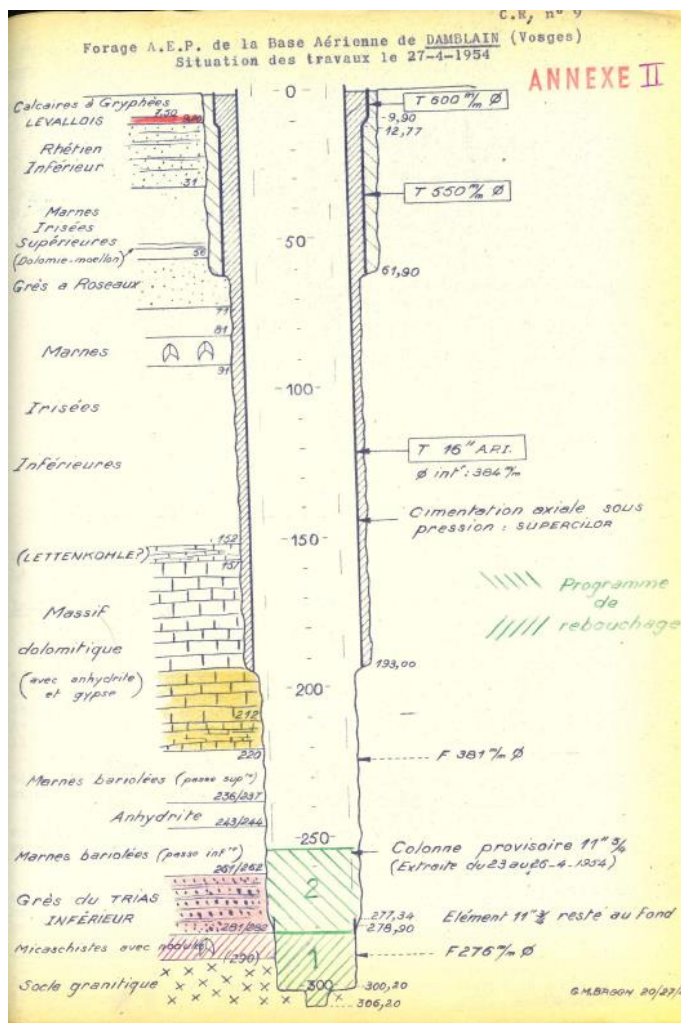 C.R, nº 9
Forage A.E.P. de la Base Aérienne de DAMBLAIN (Vosges)
Situation des travaux le 27-4-1954
ANNEXE II
Calcaires à Gryphées
7,50
LEVALLOIS
Rhétien
Inférieur
31
Marnes
Irisées
Supérieures
(Dolomie-moellon)
56
Grès a Roseaux
71
81
Marnes
91
Irisées
Inférieures
152
(LETTENKOHLE?)
157
Massif
dolomitique
(avec anhydrite)
et gypse
212
220
Marnes bariolées (passe supre)
236/237
Anhydrite
243/244
Marnes bariolées (passe infre)
261/262
Grès du TRIAS
INFÉRIEUR
281/282
Micaschistes avec nodule
(290)
Socle granitique
-0-
-50-
-100-
-150-
-200-
-250-
2
1
300
T 600 m/m Ø
-9,90
12,77
T 550 m/m Ø
61,90
T 16" A.P.I.
Ø intr: 384 m/m
Cimentation axiale sous
pression : SUPERCILOR
Programme
de
rebouchage
193,00
F 381 m/m Ø
Colonne provisoire 11" 3/4
(Extraite du 23 au 26-4-1954)
277,34
278,90
Elément 11" 3/4 resté au fond
F 276 m/m Ø
300,20
306,20